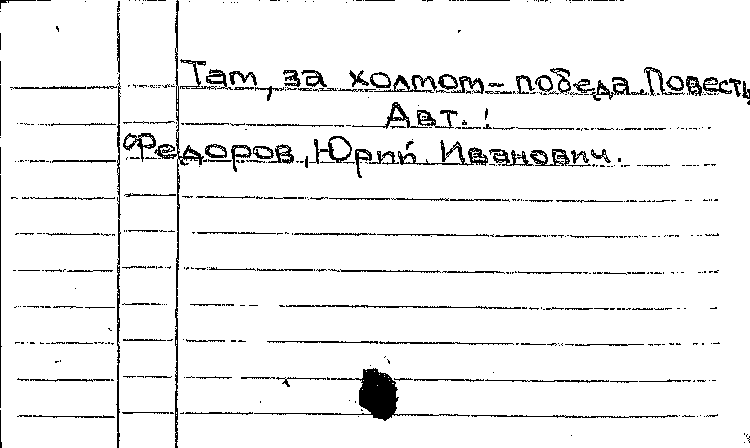 Там, за холмом - победа. Повесть
Авт.:
Федоров, Юрий Иванович.